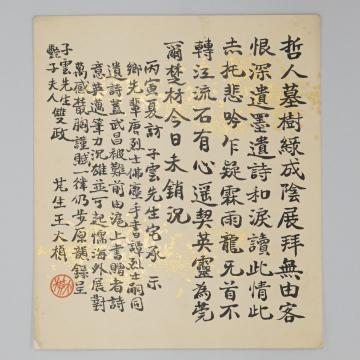 哲人墓樹綠成陰展拜無由客
恨深遺墨遺詩和淚讀此情此
志托悲吟乍疑霖雨龍牙首不
轉江流石有心遥契英靈為莞
爾焚材今日未銷沉
丙寅夏訪子雲先生宅承示
鄉先輩唐烈士佛塵手書譚烈士嗣同
遺詩蓋武昌被難前由滬上書贈者詩
意英邁筆力沉雄並可起懦海外展對
萬感觳胸謹賦一律仍步原韻錄呈
子雲先生
艷子夫人雙政
芃生王大楨